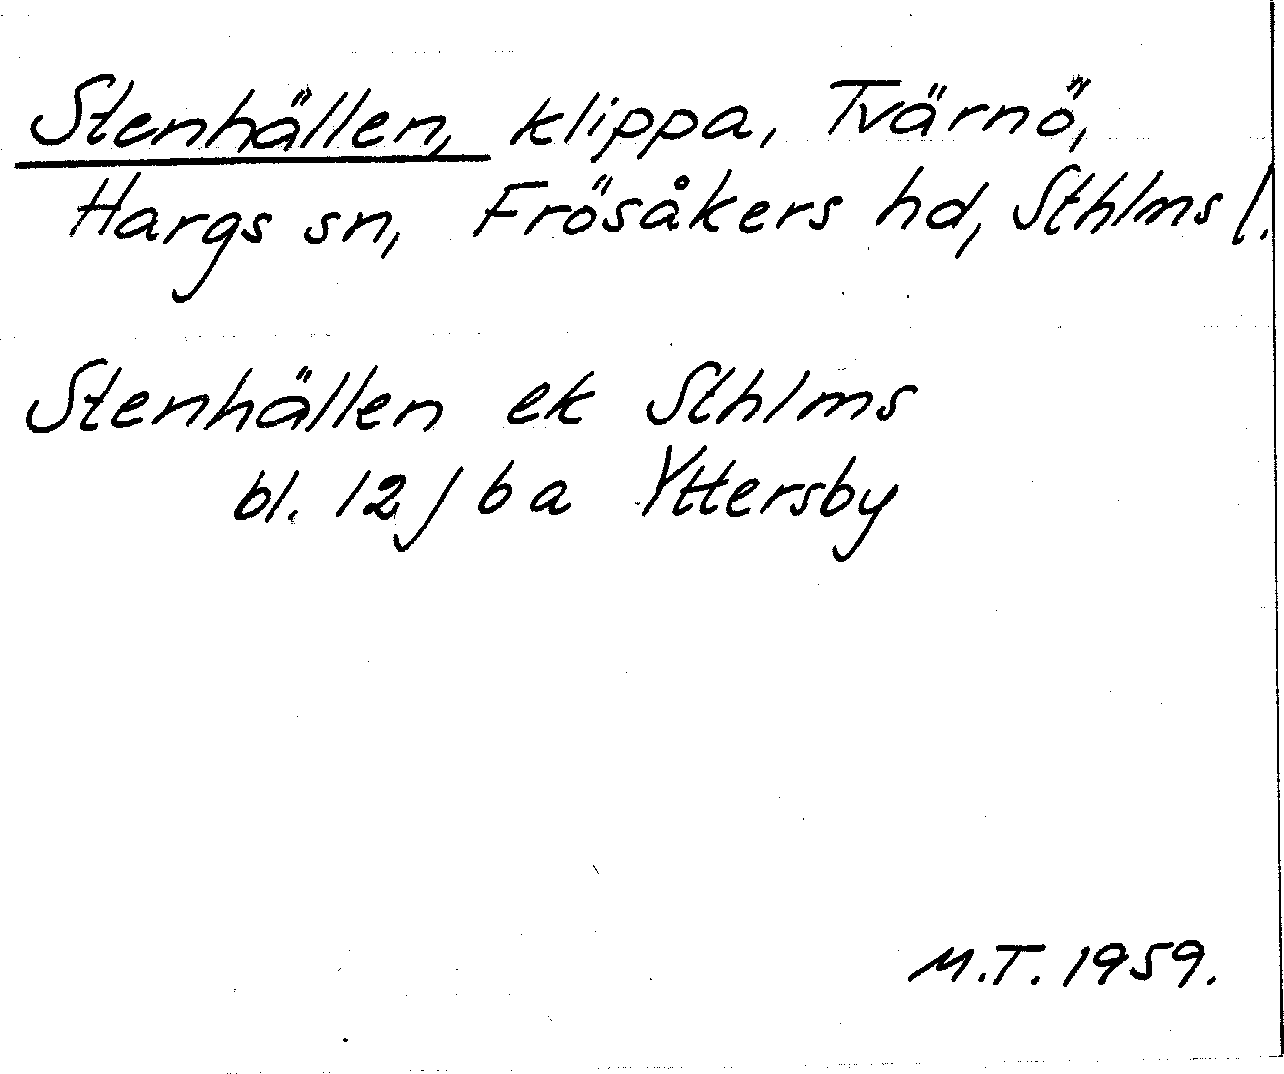 Stenhällen, klippa, Tvärnö,
Hargs sn, Frösåkers hd, Sthlms l.
Stenhällen ek Sthlms
bl. 12 j b a Yttersby
M.T. 1959.